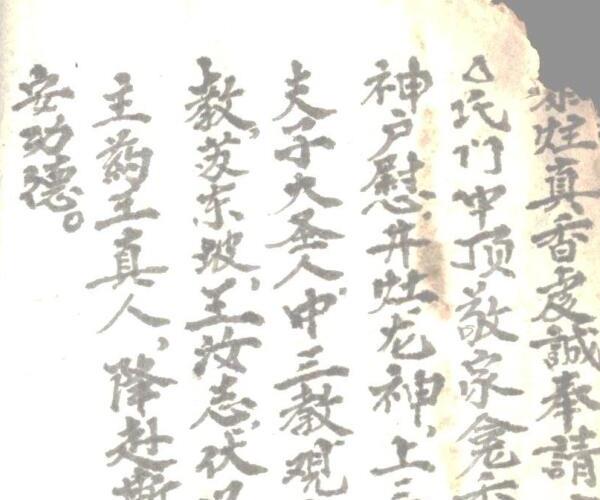 炷真香虔誠奉請
氏门中顶敬家龛
神户慰井灶龙神,上三
夫子大圣人,中三教观
教,苏东坡,王汝志,伏
主药王真人,降赴
安功德。